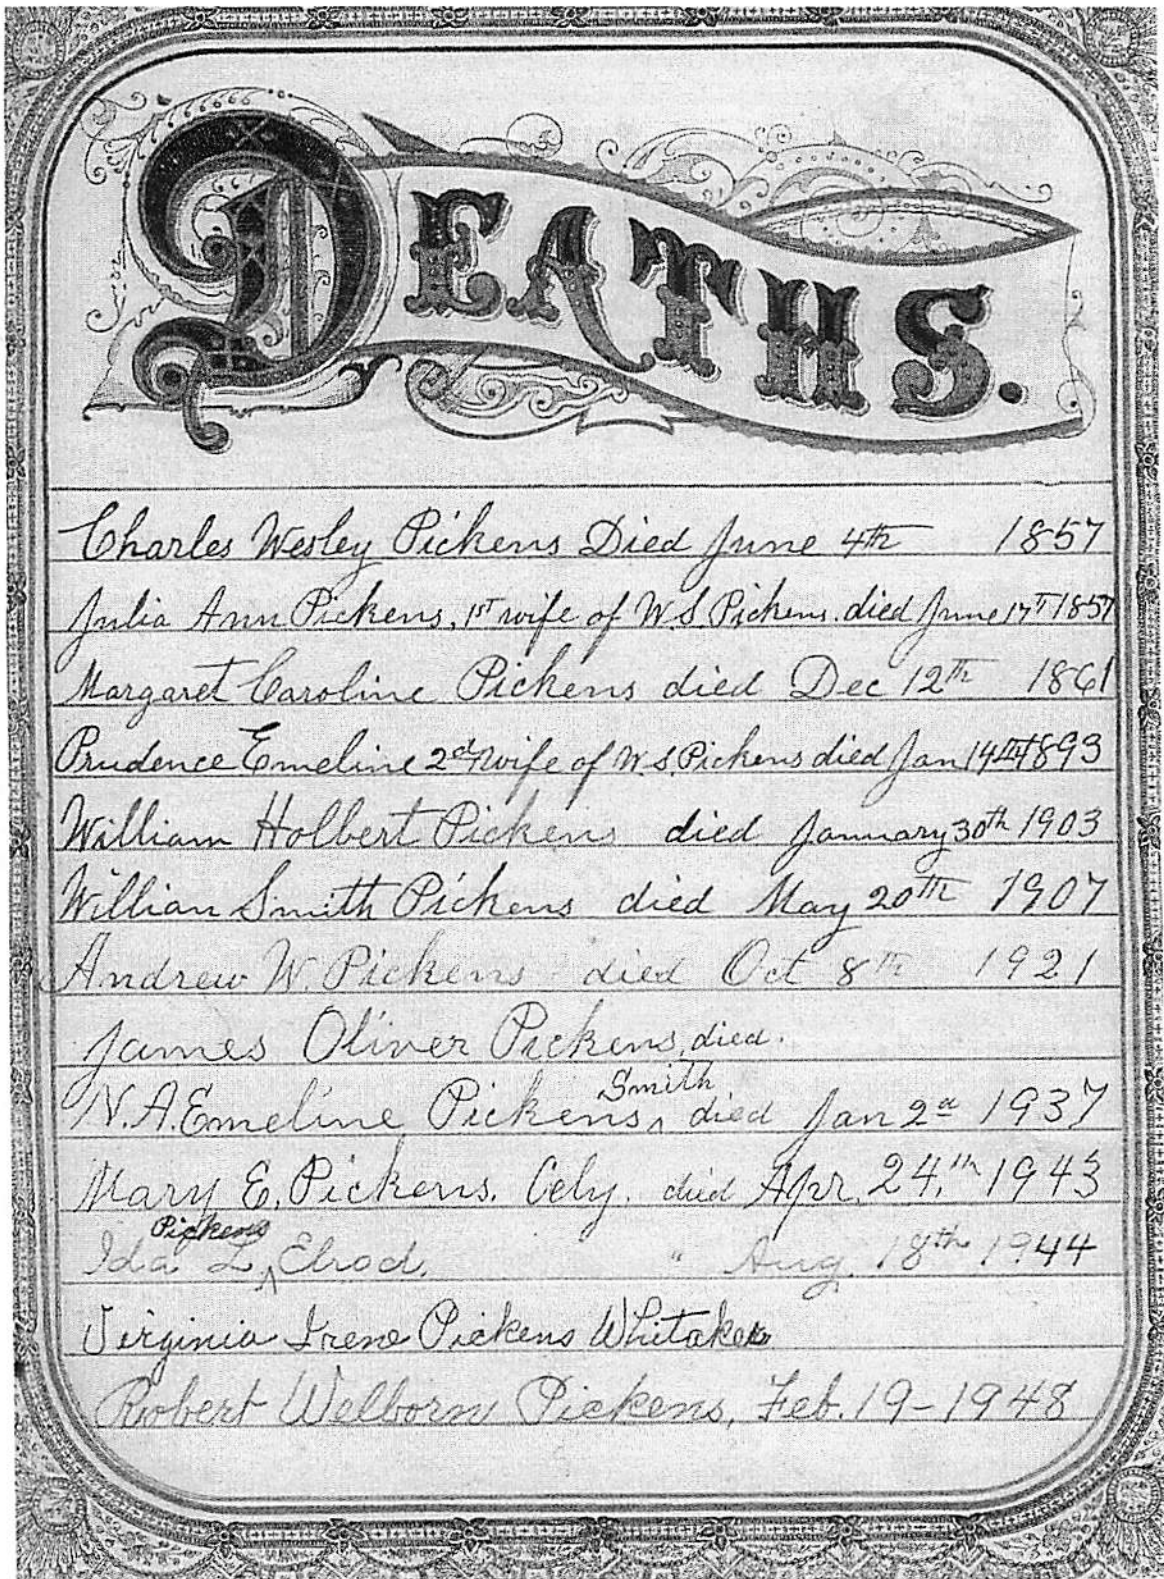 DEATHS.
Charles Wesley Pickens Died June 4th 1857
Julia Ann Pickens, 1st wife of W.S. Pickens. died June 17th 1857
Margaret Caroline Pickens died Dec 12th 1861
Prudence Emeline 2d wife of W.S. Pickens died Jan 14th 1893
William Holbert Pickens died January 30th 1903
Willian Smith Pickens died May 20th 1907
Andrew W. Pickens died Oct 8th 1921
James Oliver Pickens, died.
N.A. Emeline Pickens ^ Smith died Jan 2d 1937
Mary E. Pickens. Cely. died Apr. 24,th 1943
Ida L ^ Pickens Elrod. " Aug. 18th 1944
Virginia Irene Pickens Whitaker
Robert Welborn Pickens, Feb. 19-1948